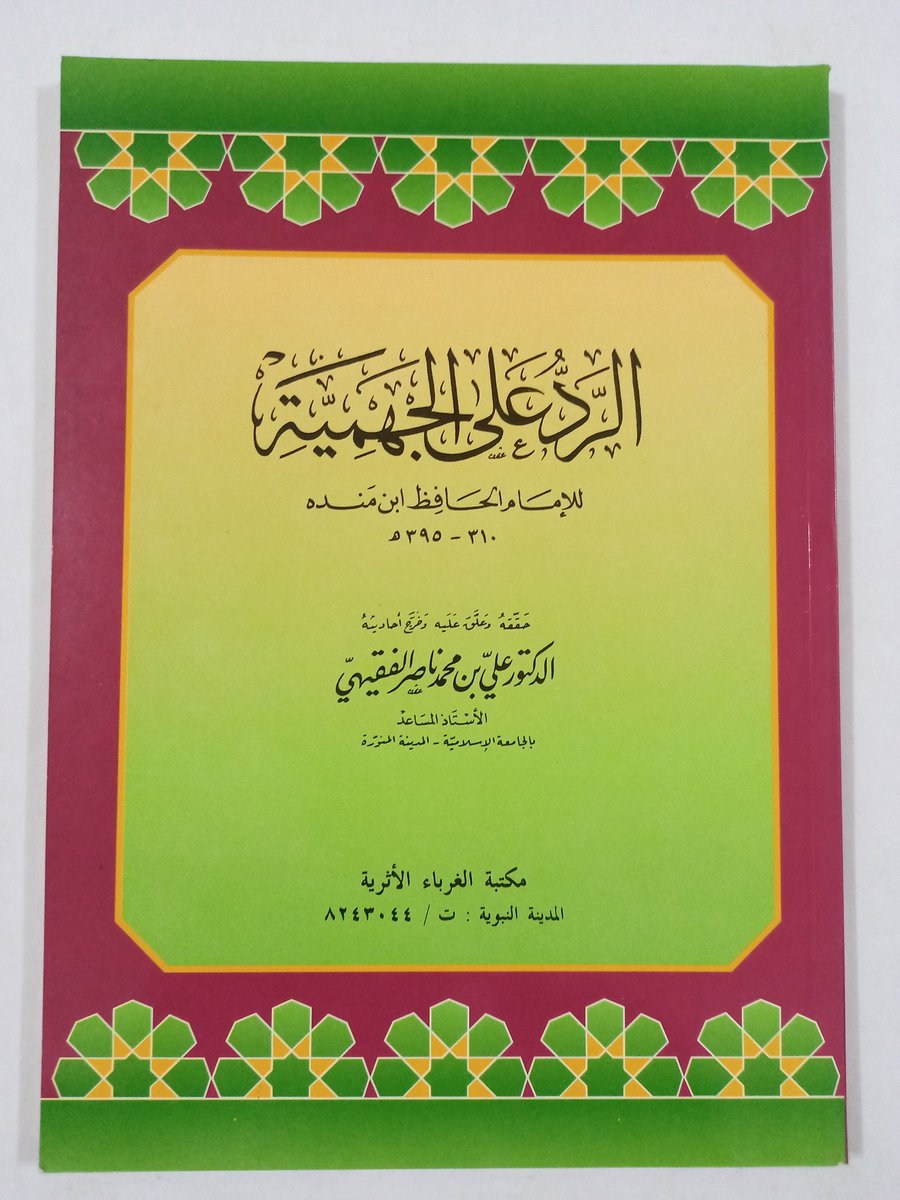 الرَّدُّ عَلى الجَهَمِيَّةِ
للإمَام الحَافِظ ابن مَنده
٣١٠ - ٣٩٥ ه
حَقّقهُ وَعَلَّقَ عَلَيه وَخَرَّج أحَاديثهُ
الدكتور عليّ بن محمد ناصر الفقيهيّ
الأسْتَاذ المسَاعد
بالجامعة الإسلاميّة - المدينة المنوّرة
مكتبة الغرباء الأثرية
المدينة النبوية : ت / ٨٢٤٣٠٤٤